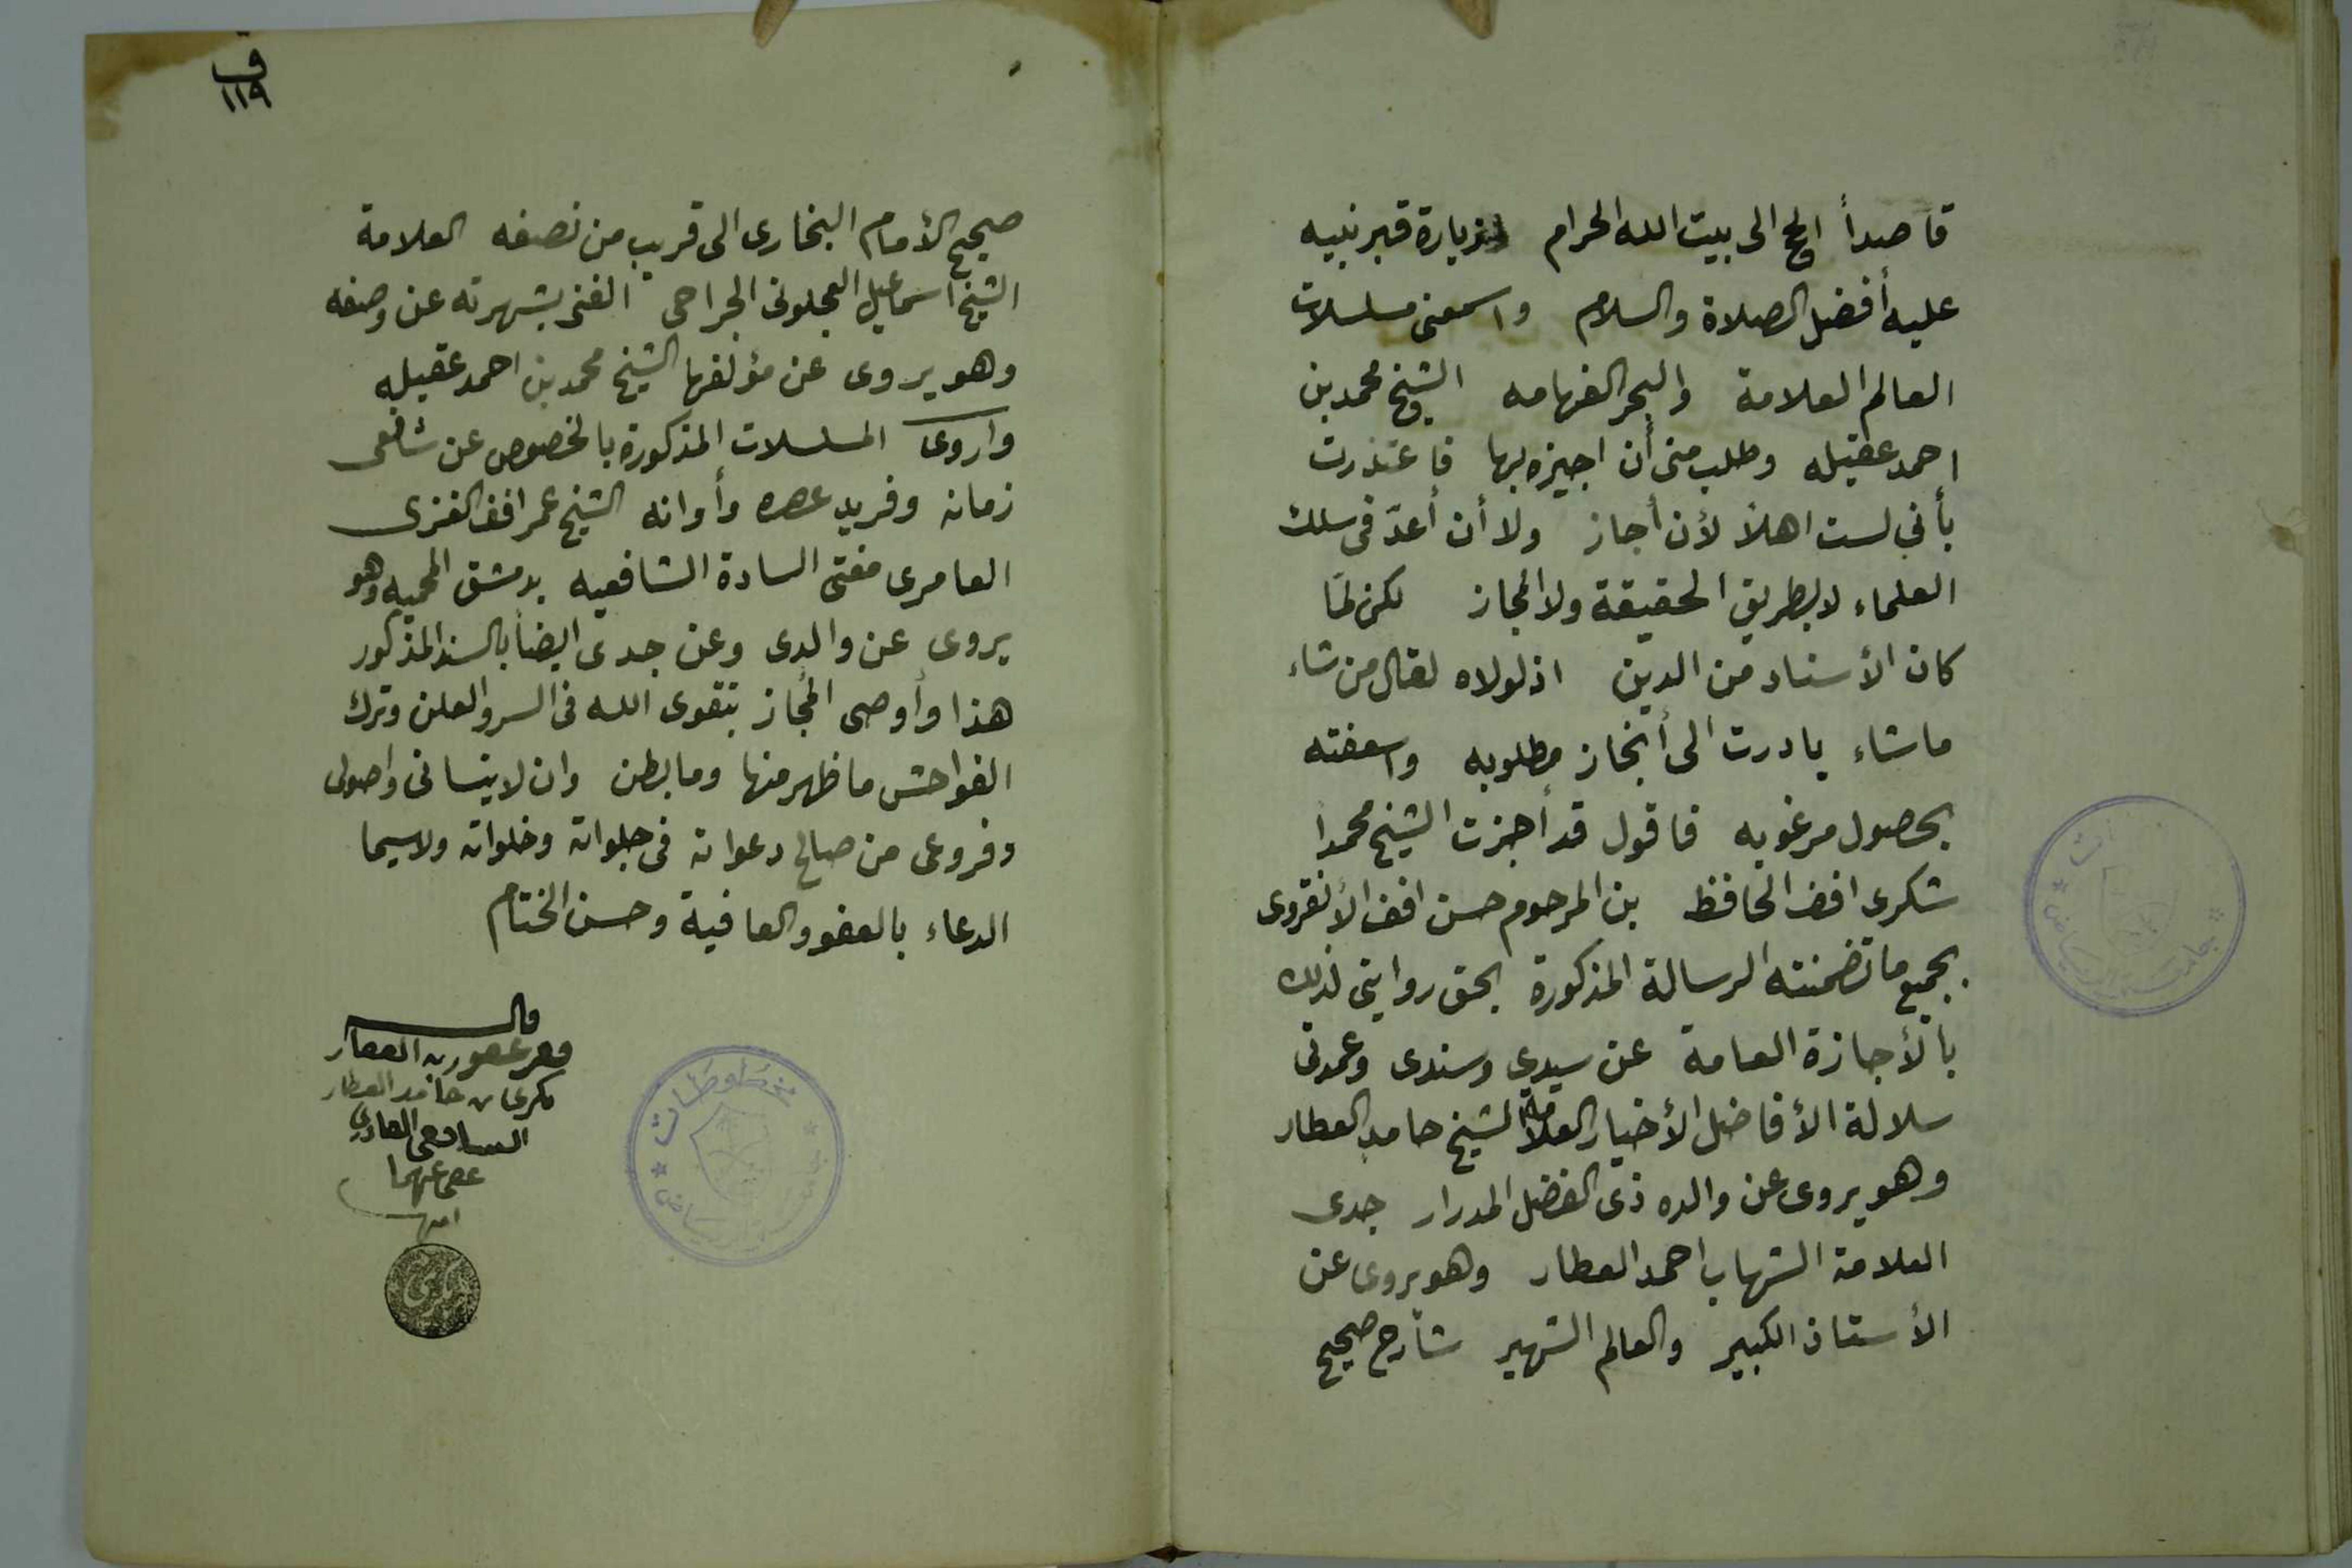 قاصداً الحج الى بيت الله الحرام وزيارة قبر نبيه
عليه أفضل الصلاة والسلام واسمعنى مسلسلات
العالم العلامة والبحر الفهامه الشيخ محمد بن
احمد عقيله وطلب منى أن اجيزه بها فاعتذرت
بأني لست اهلاً لأن أجاز ولا أن أعدّ فى سلك
العلماء لا بطريق الحقيقة ولا المجاز لكن لمّا
كان الأسناد من الدين اذ لولاه لقال من شاء
ما شاء بادرت الى أنجاز مطلوبه واسعفته
بحصول مرغوبه فاقول قد أجزت الشيخ محمداً
شكرى افند الحافظ بن المرحوم حسن افند الأنقروى
بجميع ما تضمنته الرسالة المذكورة بحق روايتى لذلك
بالأجازة العامة عن سيدي وسندى وعمدتى
سلالة الأفاضل الأخيار العلامة الشيخ حامد العطار
وهو يروى عن والده ذى الفضل المدرار جدى
العلامة الشهاب احمد العطار وهو يروى عن
الأستاذ الكبير والعالم الشهير شارح صحيح
ق
١١٩
صحيح الأمام البخارى الى قريب من نصفه العلامة
الشيخ اسماعيل العجلونى الجراحى الغنى بشهرته عن وصفه
وهو يروى عن مؤلفها الشيخ محمد بن احمد عقيله
واروى المسلسلات المذكورة بالخصوص عن شافعى
زمانه وفريد عصره وأوانه الشيخ عمر افند الغزى
العامرى مفتى السادة الشافعيه بدمشق المحميه وهو
يروى عن والدى وعن جدى ايضاً بالسند المذكور
هذا وأوصى المجاز بتقوى الله فى السر والعلن وترك
الفواحش ما ظهر منها وما بطن وان لا ينسانى واصولى
وفروعى من صالح دعواته فى جلواته وخلواته ولاسيما
الدعاء بالعفو والعافية وحسن الختام
قاله
فقير عفو ربه الغفار
بكرى بن حامد العطار
الشافعى القادري
عفى عنهما
امين
مخطوطات